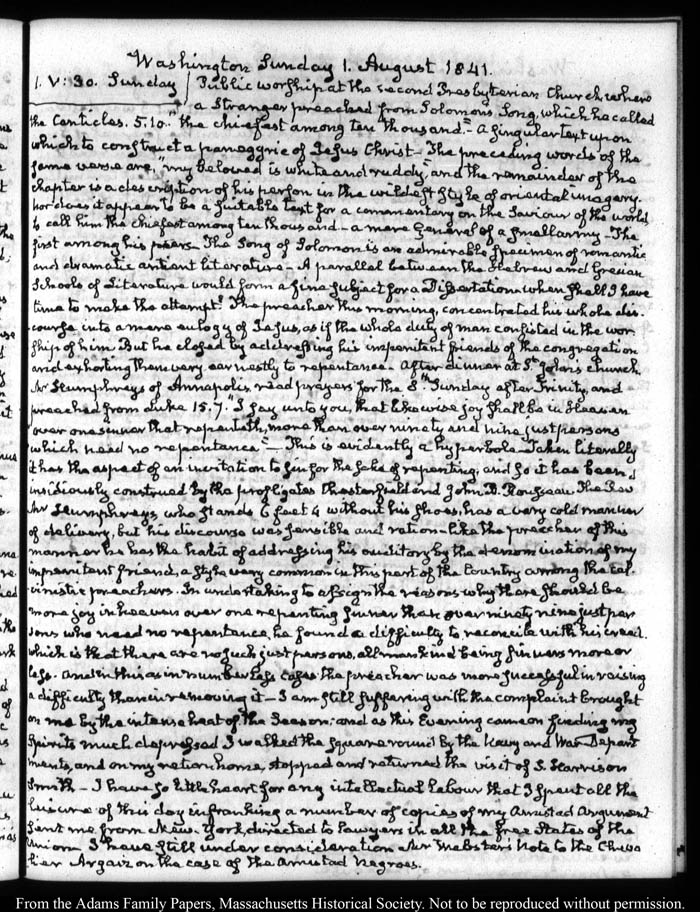 Washington Sunday 1. August 1841.
1. V: 30. Sunday Public worship at the second Presbyterian Church, where
a Stranger preached from Solomon's Song, which he called
the Canticles. 5.10. "the chiefest among ten thousand." A singular text upon
which to construct a panegyric of Jesus Christ— The preceding words of the
same verse are, "my beloved is white and ruddy," and the remainder of the
chapter is a description of his person in the wildest style of oriental imagery.
nor does it appear to be a suitable text for a commentary on the Saviour of the world
to call him the chiefest among ten thousand— a mere General of a small army— The
first among his peers— The Song of Solomon is an admirable specimen of romantic
and dramatic antient literature— A parallel between the Hebrew and Grecian
Schools of Literature would form a fine subject for a Dissertation when shall I have
time to make the attempt? The preacher this morning, concentrated his whole dis-
course into a mere eulogy of Jesus, as if the whole duty of man consisted in the wor
ship of him. But he closed by addressing his impenitent friends of the congregation
and exhorting them very earnestly to repentance— After dinner at St. John's Church.
Mr Humphreys of Annapolis, read prayers for the 8th. Sunday after Trinity, and
preached from Luke 15.7. "I say unto you, that likewise joy shall be in Heaven
over one sinner that repenteth, more than over ninety and nine just persons
which need no repentance"— This is evidently a hyperbole— Taken literally
it has the aspect of an incitation to sin for the sake of repenting, and so it has been
insidiously construed by the profligates Chesterfield and John B. Rousseau. The Revd
Mr Humphreys, who stands 6 feet 4 without his shoes, has a very cold manner
of delivery, but his discourse was sensible and like the preacher of this
he has the habit of addressing his auditory by the denomination of my
impenitent friend, a style very common in this part of the Country among the Cal-
vinistic preachers. In undertaking to assign the reasons why there should be
more joy in heaven over one repenting sinner than over ninety nine just per
sons who need no repentance, he found a difficulty to reconcile with his creed.
which is that there are no such just persons, all mankind being sinners more or
less. And in this as in numberless cases the preacher was more successful in raising
a difficulty than in removing it— I am still suffering with the complaint brought
on me by the intense heat of the Season: and as this Evening came on finding my
Spirits much depressed I walked the square round by the Navy and War Depart
ments, and on my return home, stopped and returned the visit of S. Harrison
Smith— I have so little heart for any intellectual labour that I spent all the
leisure of this day in franking a number of copies of my Amistad Argument
sent me from New-York, directed to Lawyers in all the free States of the
Union I have still under consideration Mr Webster's Note to the Cheva
lier Argaiz on the case of the Amistad Negroes.
From the Adams Family Papers, Massachusetts Historical Society. Not to be reproduced without permission.